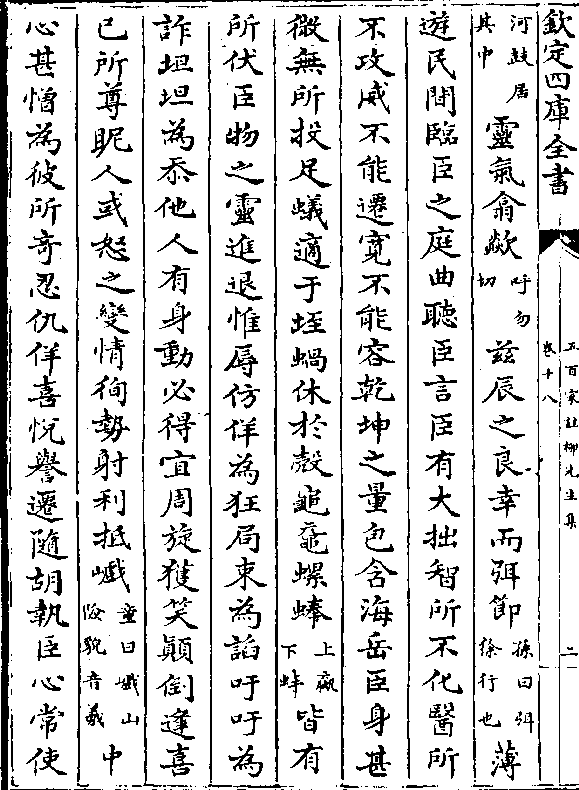 欽定四庫全書
五百家註柳先生集
卷十八
二
河鼓居其中靈氣翕歘呼勿切兹辰之良幸而弭節孫曰弭徐行也薄
遊民間臨臣之庭曲聽臣言臣有大拙智所不化醫所
不攻威不能遷寛不能容乾坤之量包含海岳臣身甚
微無所投足蟻適于垤蝸休於殻龜黿螺蜯上蠃下蚌皆有
所伏臣物之靈進退惟辱仿佯為狂局束為謟吁吁為
詐坦坦為忝他人有身動必得宜周旋獲笑顛倒逢喜
已所尊昵人或怒之變情徇勢射利抵巇童曰巇山險貌音羲中
心甚憎為彼所奇忍仇佯喜悦譽遷隨胡執臣心常使